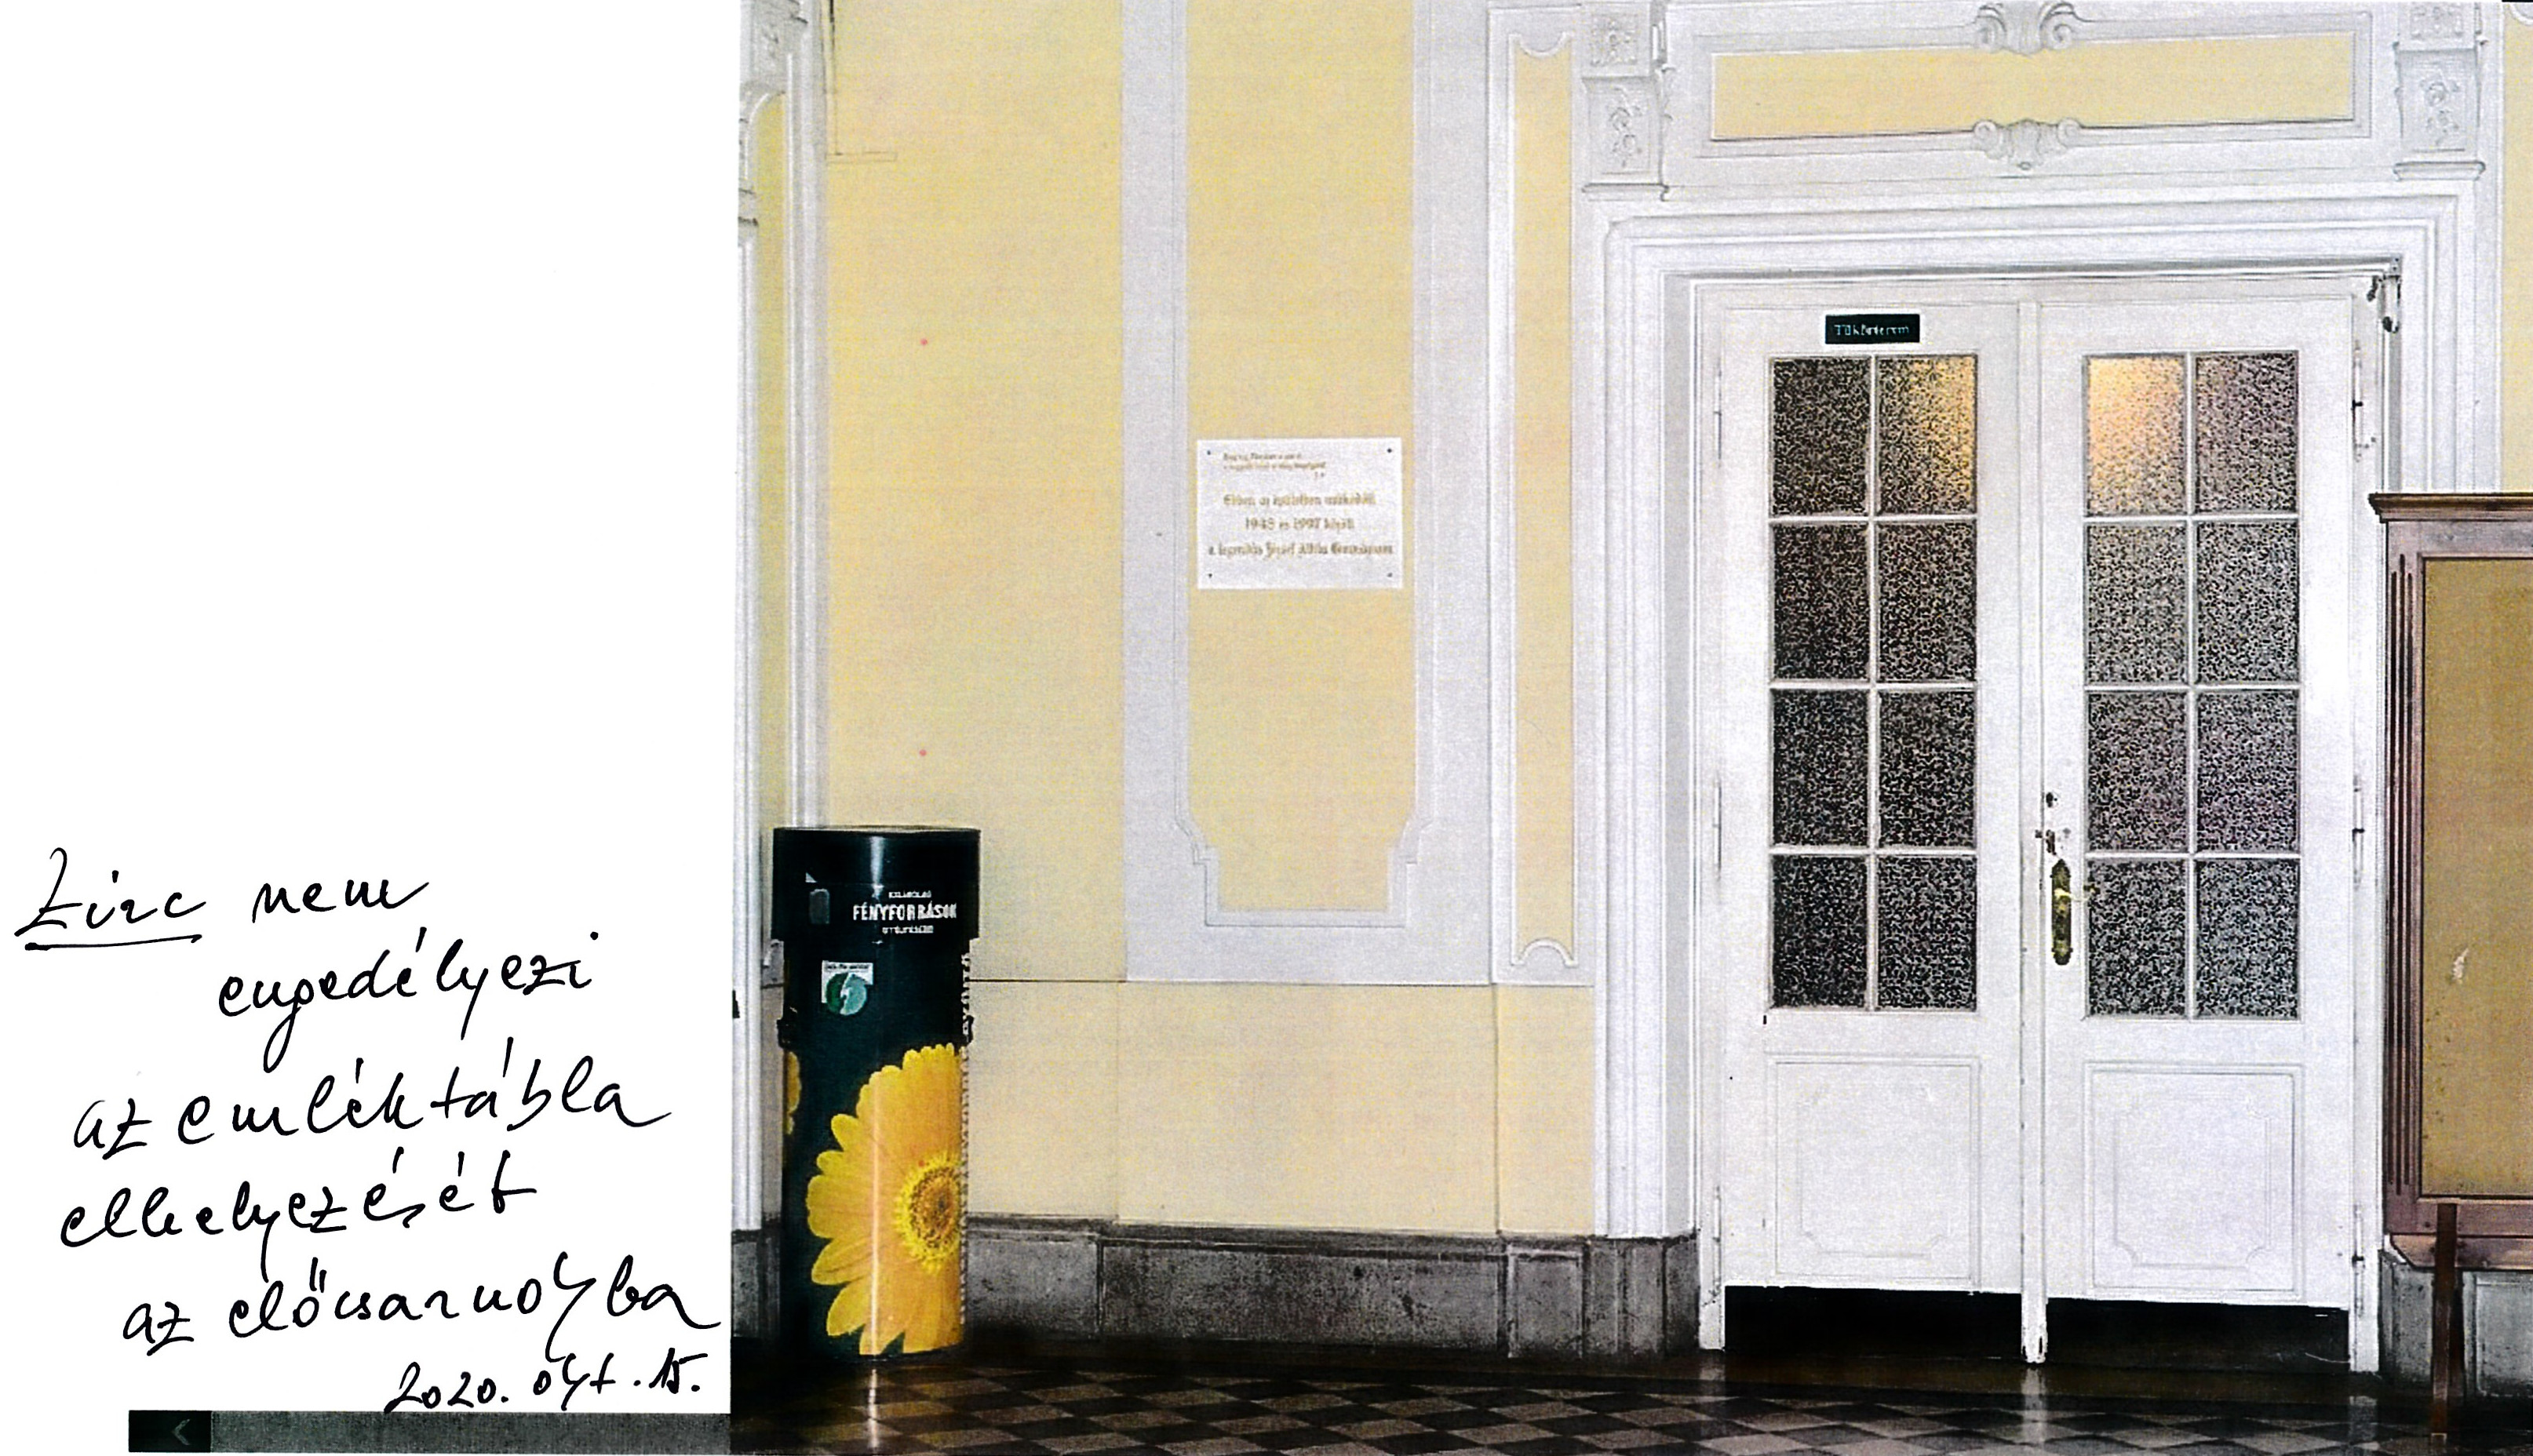 Zirc nem
engedélyezi
az emléktábla
elhelyezését
az előcsarnokba
2020. okt. 15.
Ebben az épületben működött
1948 és 1997 között
a legendás József Attila Gimnázium
Tükörterem
FÉNYFORRÁSOK